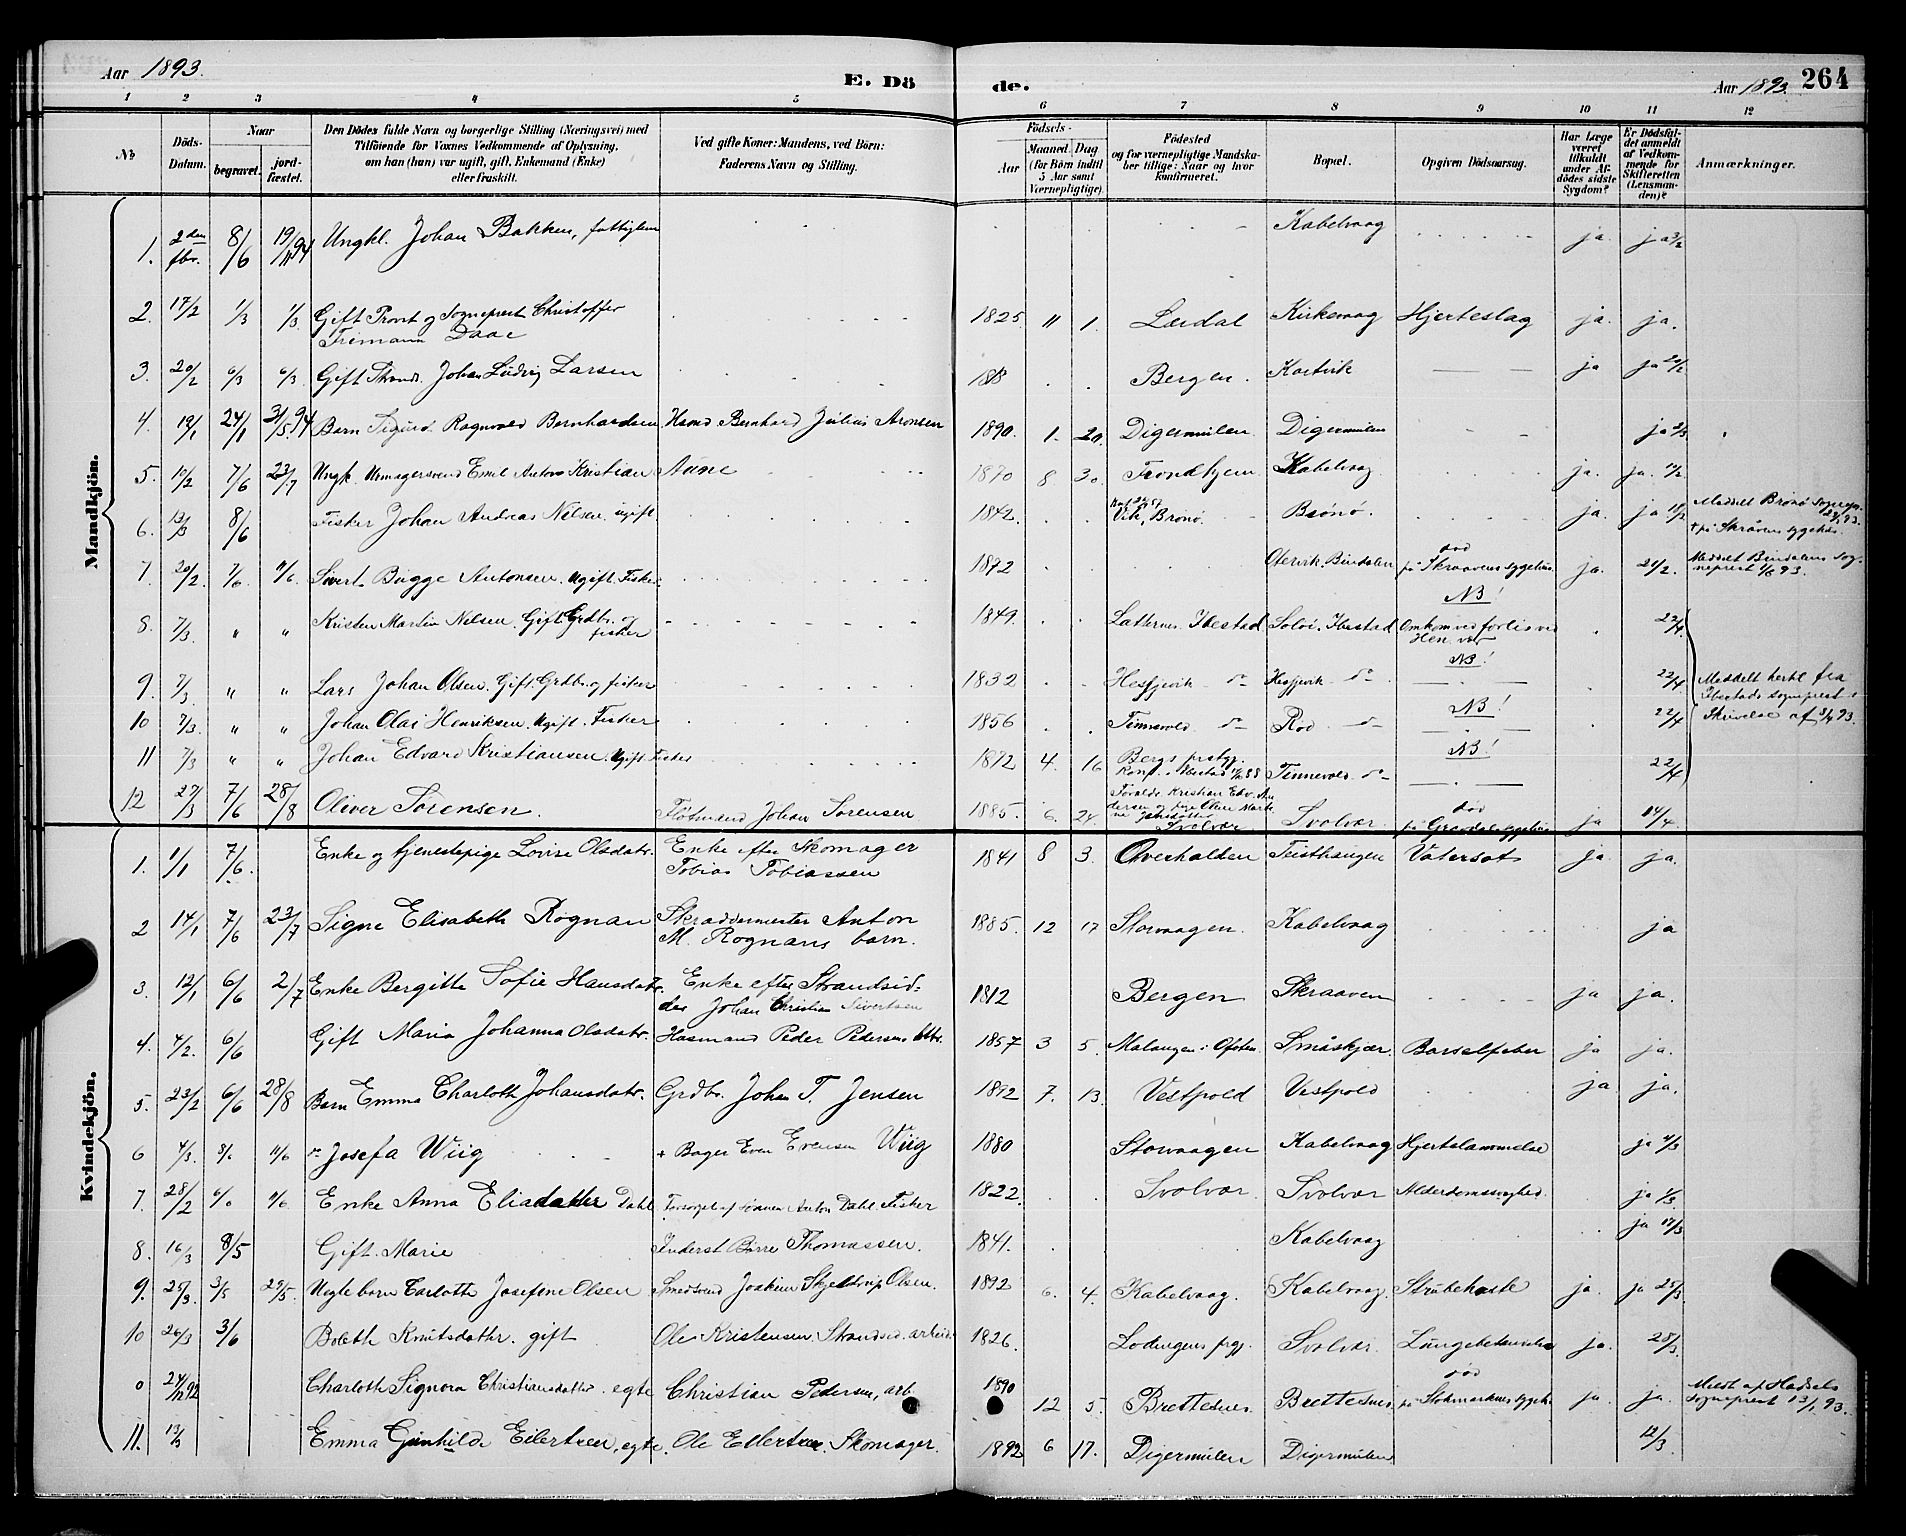 Aar 1893. E. Dö de. Aar 1893. 264
1 2 3 4 5 6 7 8 9 10 11 12
No Döds-Datum. Naar begravet. jord-fæstet. Den Dödes fulde Navn og borgerlige Stilling (Næringsvei) med Tilföiende for Voxnes Vedkommende af Oplysning, om han (hun) var ugift, gift, Enkemand (Enke) eller fraskilt. Ved gifte Koner: Mandens, ved Börn: Faderens Navn og Stilling. Födsels- Aar Maaned. Dag (for Börn indtil 5 Aar samt Værnepligtige). Födested og for værnepligtige Mandskaber tillige: Naar og hvor konfirmeret. Bopæl. Opgiven Dödsaarsag. Har Læge været tilkaldt under Afdödes sidste Sygdom? Er Dödsfaldet anmeldt af Vedkommende for Skifteretten (Lensmanden)? Anmærkninger.
Mandkjön.
1. 2den fbr. 8/6 19/11 94 Ungkl. Johan Bakken, fattiglem Kabelvaag ja ja 3/2
2. 17/2 1/3 1/3 Gift Provst og Sogneprest Christoffer Daae 1825 11 1. Lærdal Kirkevaag Hjerteslag ja. ja.
3. 20/2 6/3 6/3. Gift Strands. Johan Ludvig Larsen Bergen. ja ja 20/2
4. 19/1 24/1 31/5 94 Barn Sigurd Ragnvald Bernhardsen Bernhard Julius Aronsen 1890. 1. 20. Digermulen Digermulen ja 2/3
5. 10/2 7/6 23/7 Ungk. Urmagersvend Emil Anton Kristian Aune 1870 8 30. Trondhjem Kabelvaag ja. ja.
6. 13/3 8/6 Fisker Johan Andreas Nelsen ugift 1842. Vik, Brønø. Brønø. ja. ja Meddelt Brønø sogenpr. + på Skråven sygehus.
7. 20/2 7/6. 9/6. Sivert Bugge Antonsen. Ugift. Fisker 1872 Otervik. Bindalen død på Skraavens sygehus. ja. 21/2. Meddelt Bindalens Sogneprest 1/6 93.
8. 7/3. " " Kristen Martin Nelsen. Gift. Grdbr. og fisker 1849. Ibestad Ibestad NB! Omkom ved forlis ved Hen. vær 22/4
9. 7/3 " " Lars Johan Olsen. Gift. Grdb. og fisker 1832 Hesjevik do Hesjevik do NB! 22/4 Meddelt hertil fra Ibestads sogneprest i
10 7/3. " " Johan Olai Henriksen. Ugift. Fisker 1856 do Rod do NB! 22/4 Skrivelse af 93.
11 7/3 " " Johan Edvard Kristiansen. Ugift. Fisker 1872 4. 16 Bergs prstgj. Tennevold do NB! 22/4
12 27/3 7/6 28/8 Oliver Sørensen. Johan Sørensen 1885. 6. 24. Svolvær Svolvær. død på Gravdals sygehus ja 14/4
Kvindekjön.
1. 1/1 7/6. Enke og tjenestepige Lovise Olsdatr. Enke efter Skomager Tobias Tobiassen 1841 8 3. Overhalden Teisthaugen Vatersot ja. ja.
2 14/1 7/6 23/7 Signe Elisabeth Rognan Skræddermester Anton M. Rognans barn. 1885. 12 17 Storvaagen. Kabelvaag ja
3. 12/1 6/6 2/7 Enke Bergitte Sofie Hansdatr. Enke efter Strandsidder Johan Christian Sivertsen 1812 Bergen Skraaven ja ja.
4. 4/2. 6/6 Gift Maria Johanna Olsdatr. Husmand Peder Pedersen 1857 3 5. Malangen i Ofoten. Småskjær. Barselfeber ja ja.
5. 23/2 6/6 28/8 Barn Emma Charloth Johansdatr. Grdbr. Johan T. Jensen 1892 7. 13. Vestpold Vestpold ja ja.
6 4/3. 8/6 11/6 Josefa Wiig + Bager Even Evensen Wiig 1880 Storvaagen Kabelvaag Hjertelammelse ja 4/3
7. 28/2 6/6 9/6 Enke Anna Eliadatter Dahl Forsørget af sønnen Anton Dahl. Fisker 1822. Svolvær. Svolvær Alderdomssvaghed. ja 1/3.
8. 16/3 8/5 Gift. Marie Inderst Børre Thomassen. 1841. Kabelvaag ja 17/3
9. 25/3. 3/5 29/5. Uegte barn Carlotta Josefine Olsen Smedsvend Joakim Skjeldrup Olsen. 1892 6. 4. Kabelvaag. Kabelvaag. Strubehoste ja. ja 25/3
10 26/3 3/6 Boleth Knutsdattr. gift Ole Kristensen. Strandsid. arbeid. 1826. Lødingens prgj. Svolvær. Lungebetændelse ja. 28/3
0 24/12 92 Charlotte Signora Christiansdatter. egte Christian Pedersen, arb. 1890 12 5. Brettesnes Brettesnes død på Stokmarknes sygeh. ja ja. Medt. af Hadsels sogneprest 13/1. 93.
11. 13/3 Emma Gunhilde Eilertsen, egte. Ole Eilertsen. Skomager. 1892 6 17. Digermulen Digermulen 12/3